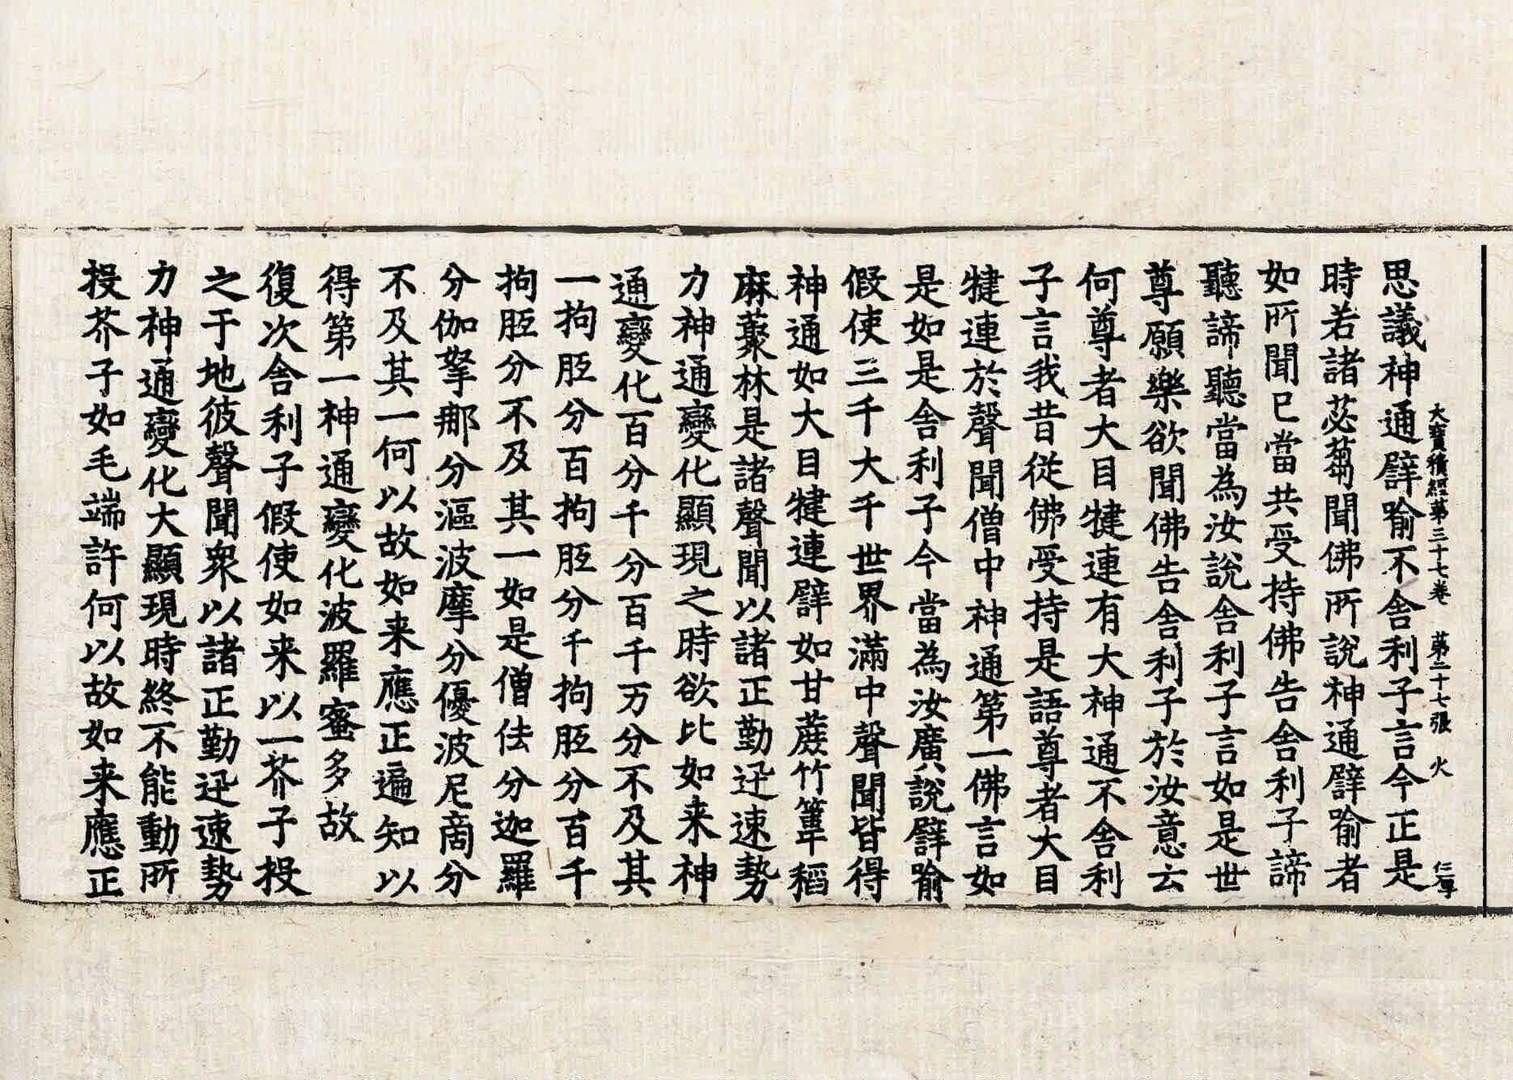 大寶積經第三十七卷　第二十七張　火　仁尊
思議神通譬喻不舍利子言今正是
時若諸苾蒭聞佛所說神通譬喻者
如所聞已當共受持佛告舍利子諦
聽諦聽當為汝說舍利子言如是世
尊願樂欲聞佛告舍利子於汝意云
何尊者大目揵連有大神通不舍利
子言我昔從佛受持是語尊者大目
揵連於聲聞僧中神通第一佛言如
是如是舍利子今當為汝廣說譬喻
假使三千大千世界滿中聲聞皆得
神通如大目揵連譬如甘蔗竹葦稻
麻藂林是諸聲聞以諸正勤迅速勢
力神通變化顯現之時欲比如来神
通變化百分千分百千万分不及其
一拘胝分百拘胝分千拘胝分百千
拘胝分不及其一如是僧佉分迦羅
分伽拏那分漚波摩分優波尼商分
不及其一何以故如来應正遍知以
得第一神通變化波羅蜜多故
復次舍利子假使如来以一芥子投
之于地彼聲聞衆以諸正勤迅速勢
力神通變化大顯現時終不能動所
投芥子如毛端許何以故如来應正